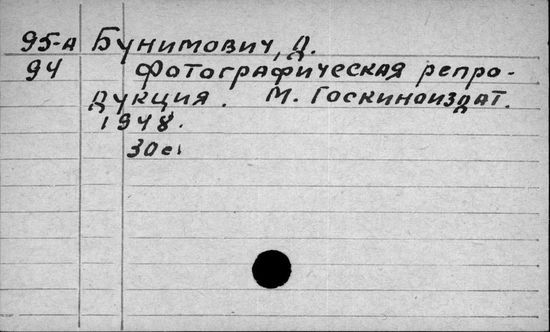 95-А Бунимович, Д.
94 Фотографическая репро-
дукция. М. Госкиноиздат.
1948.
30с.